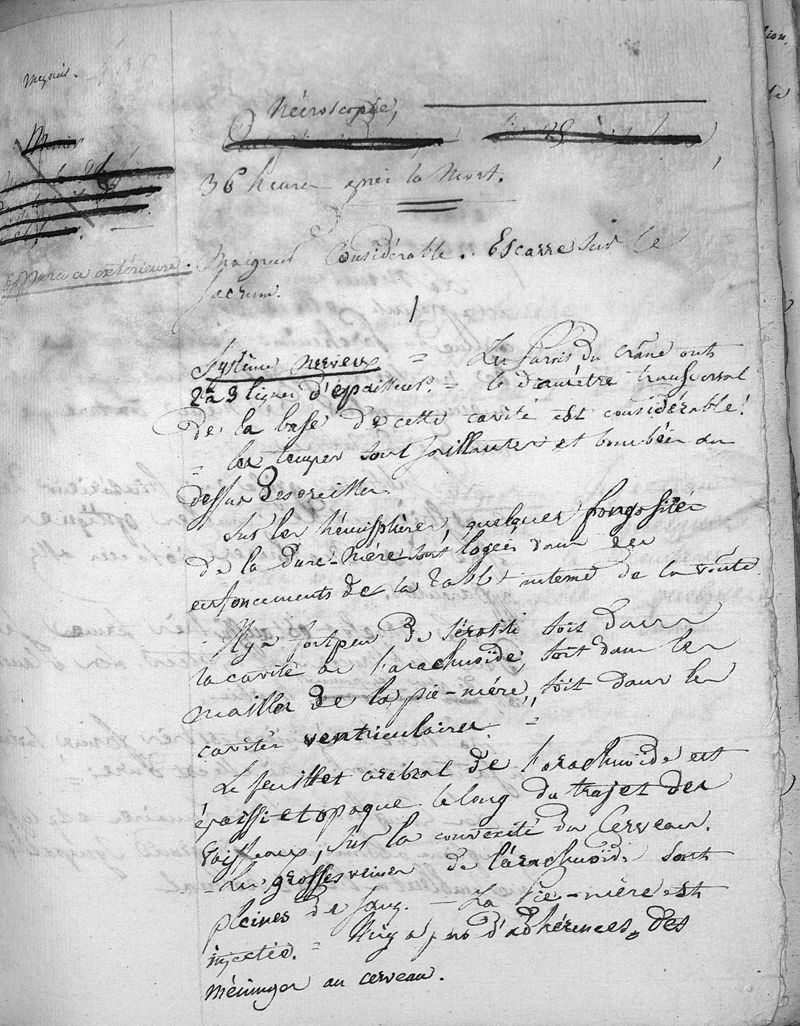 Nécroscopie,
36 heures après la Mort.
apparence extérieure.
Maigreur Considérable. Escarre sur le
Sacrum.
Système nerveux = Les parois du crâne ont
2 à 3 lignes d'épaisseur. = le diamétre transversal
de la base de cette cavité est considérable!
= les tempes sont saillantes et bombées au
dessus des oreilles.
Sur les hémisphères, quelques fongosités
de la dure-mère sont logées dans les
enfoncements de la table interne de la voûte.
Il y a fort peu de sérosité soit dans
la cavité de l'arachnoïde, soit dans les
mailles de la pie-mère, soit dans les
cavités ventriculaires. =
Le feuillet cérébral de l'arachnoïde est
épaissi et opaque le long du trajet des
vaisseaux, sur la convexité du Cerveau.
- Les grosses veines de l'arachnoïde sont
pleines de sang. - La Pie-mère est
injectée. = Il n'y a pas d'adhérences des
méninges au cerveau.